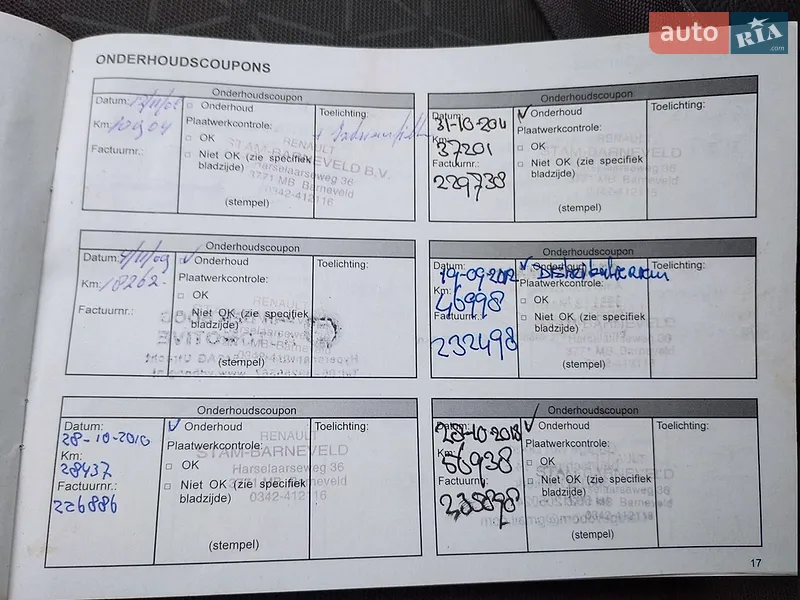 auto RIA .com
ONDERHOUDSCOUPONS
Onderhoudscoupon
Datum:
Onderhoud
Toelichting:
Km:
Plaatwerkcontrole:
OK
Factuurnr.:
Niet OK (zie specifiek
bladzijde)
(stempel)
RENAULT
STAM-BARNEVELD B.V.
Harselaarseweg 36
3771 MB Barneveld
0342-412116
Onderhoudscoupon
Datum:
31-10-2011
Onderhoud
Toelichting:
Km:
37201
Plaatwerkcontrole:
OK
Factuurnr.:
229738
Niet OK (zie specifiek
bladzijde)
(stempel)
Onderhoudscoupon
Datum:
Onderhoud
Toelichting:
Km: 18262-
Plaatwerkcontrole:
OK
Factuurnr.:
Niet OK (zie specifiek
bladzijde)
(stempel)
Onderhoudscoupon
Datum:
19-09-2012
Onderhoud
Distributieriem
Toelichting:
Km:
46998
Plaatwerkcontrole:
OK
Factuurnr.:
232498
Niet OK (zie specifiek
bladzijde)
(stempel)
Onderhoudscoupon
Datum:
28-10-2010
Onderhoud
Toelichting:
Km:
28437
Plaatwerkcontrole:
OK
Factuurnr.:
226886
Niet OK (zie specifiek
bladzijde)
(stempel)
RENAULT
STAM-BARNEVELD
Harselaarseweg 36
3771 MB Barneveld
0342-412116
Onderhoudscoupon
Datum:
Onderhoud
Toelichting:
Km:
56938
Plaatwerkcontrole:
OK
Factuurnr.:
Niet OK (zie specifiek
bladzijde)
(stempel)
17